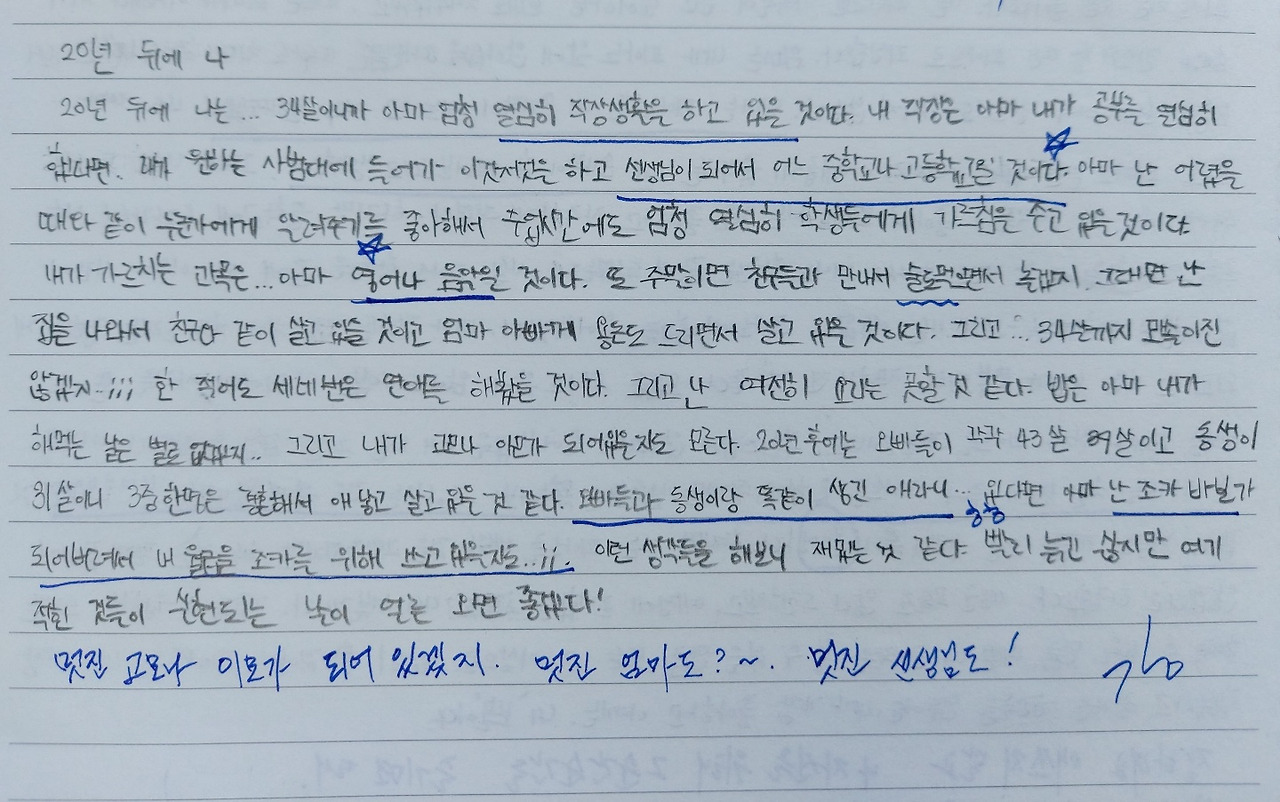 20년 뒤에 나
20년 뒤에 나는... 34살이니까 아마 엄청 열심히 직장생활을 하고 있을 것이다. 내 직장은 아마 내가 공부를 열심히
했다면, 내가 원하는 사범대에 들어가 이것저것을 하고 선생님이 되어서 어느 중학교나 고등학교일 것이다. 아마 난 어렸을
때와 같이 누군가에게 알려주기를 좋아해서 수업시간에도 엄청 열심히 학생들에게 가르침을 주고 있을것이다
내가 가르치는 과목은... 아마 영어나 음악일 것이다. 또 주말이면 친구들과 만나서 술도먹으면서 놀겠지. 그때면 난
집을 나와서 친구와 같이 살고 있을 것이고 엄마 아빠께 용돈도 드리면서 살고 있을 것이다. 그리고... 34살까지 모솔이진
않겠지..;;; 한 적어도 세네번은 연애를 해봤을 것이다. 그리고 난 여전히 요리는 못할 것 같다. 밥은 아마 내가
해먹는 날은 별로 없겠지.. 그리고 내가 고모나 이모가 되어있을지도 모른다. 20년 후에는 오빠들이 각각 43살 39살이고 동생이
31살이니 3중 한명은 결혼해서 애 낳고 살고 있을 것 같다. 오빠들과 동생이랑 똑같이 생긴 애라니... 있다면 아마 난 조카 바보가
ㅎㅎ
되어버려서 내 월급을 조카를 위해 쓰고 있을지도..;;. 이런 생각들을 해보니 재밌는 것 같다. 빨리 늙긴 싫지만 여기
적힌 것들이 실현되는 날이 얼른 오면 좋겠다!
멋진 고모나 이모가 되어 있겠지. 멋진 엄마도?~. 멋진 선생님도!